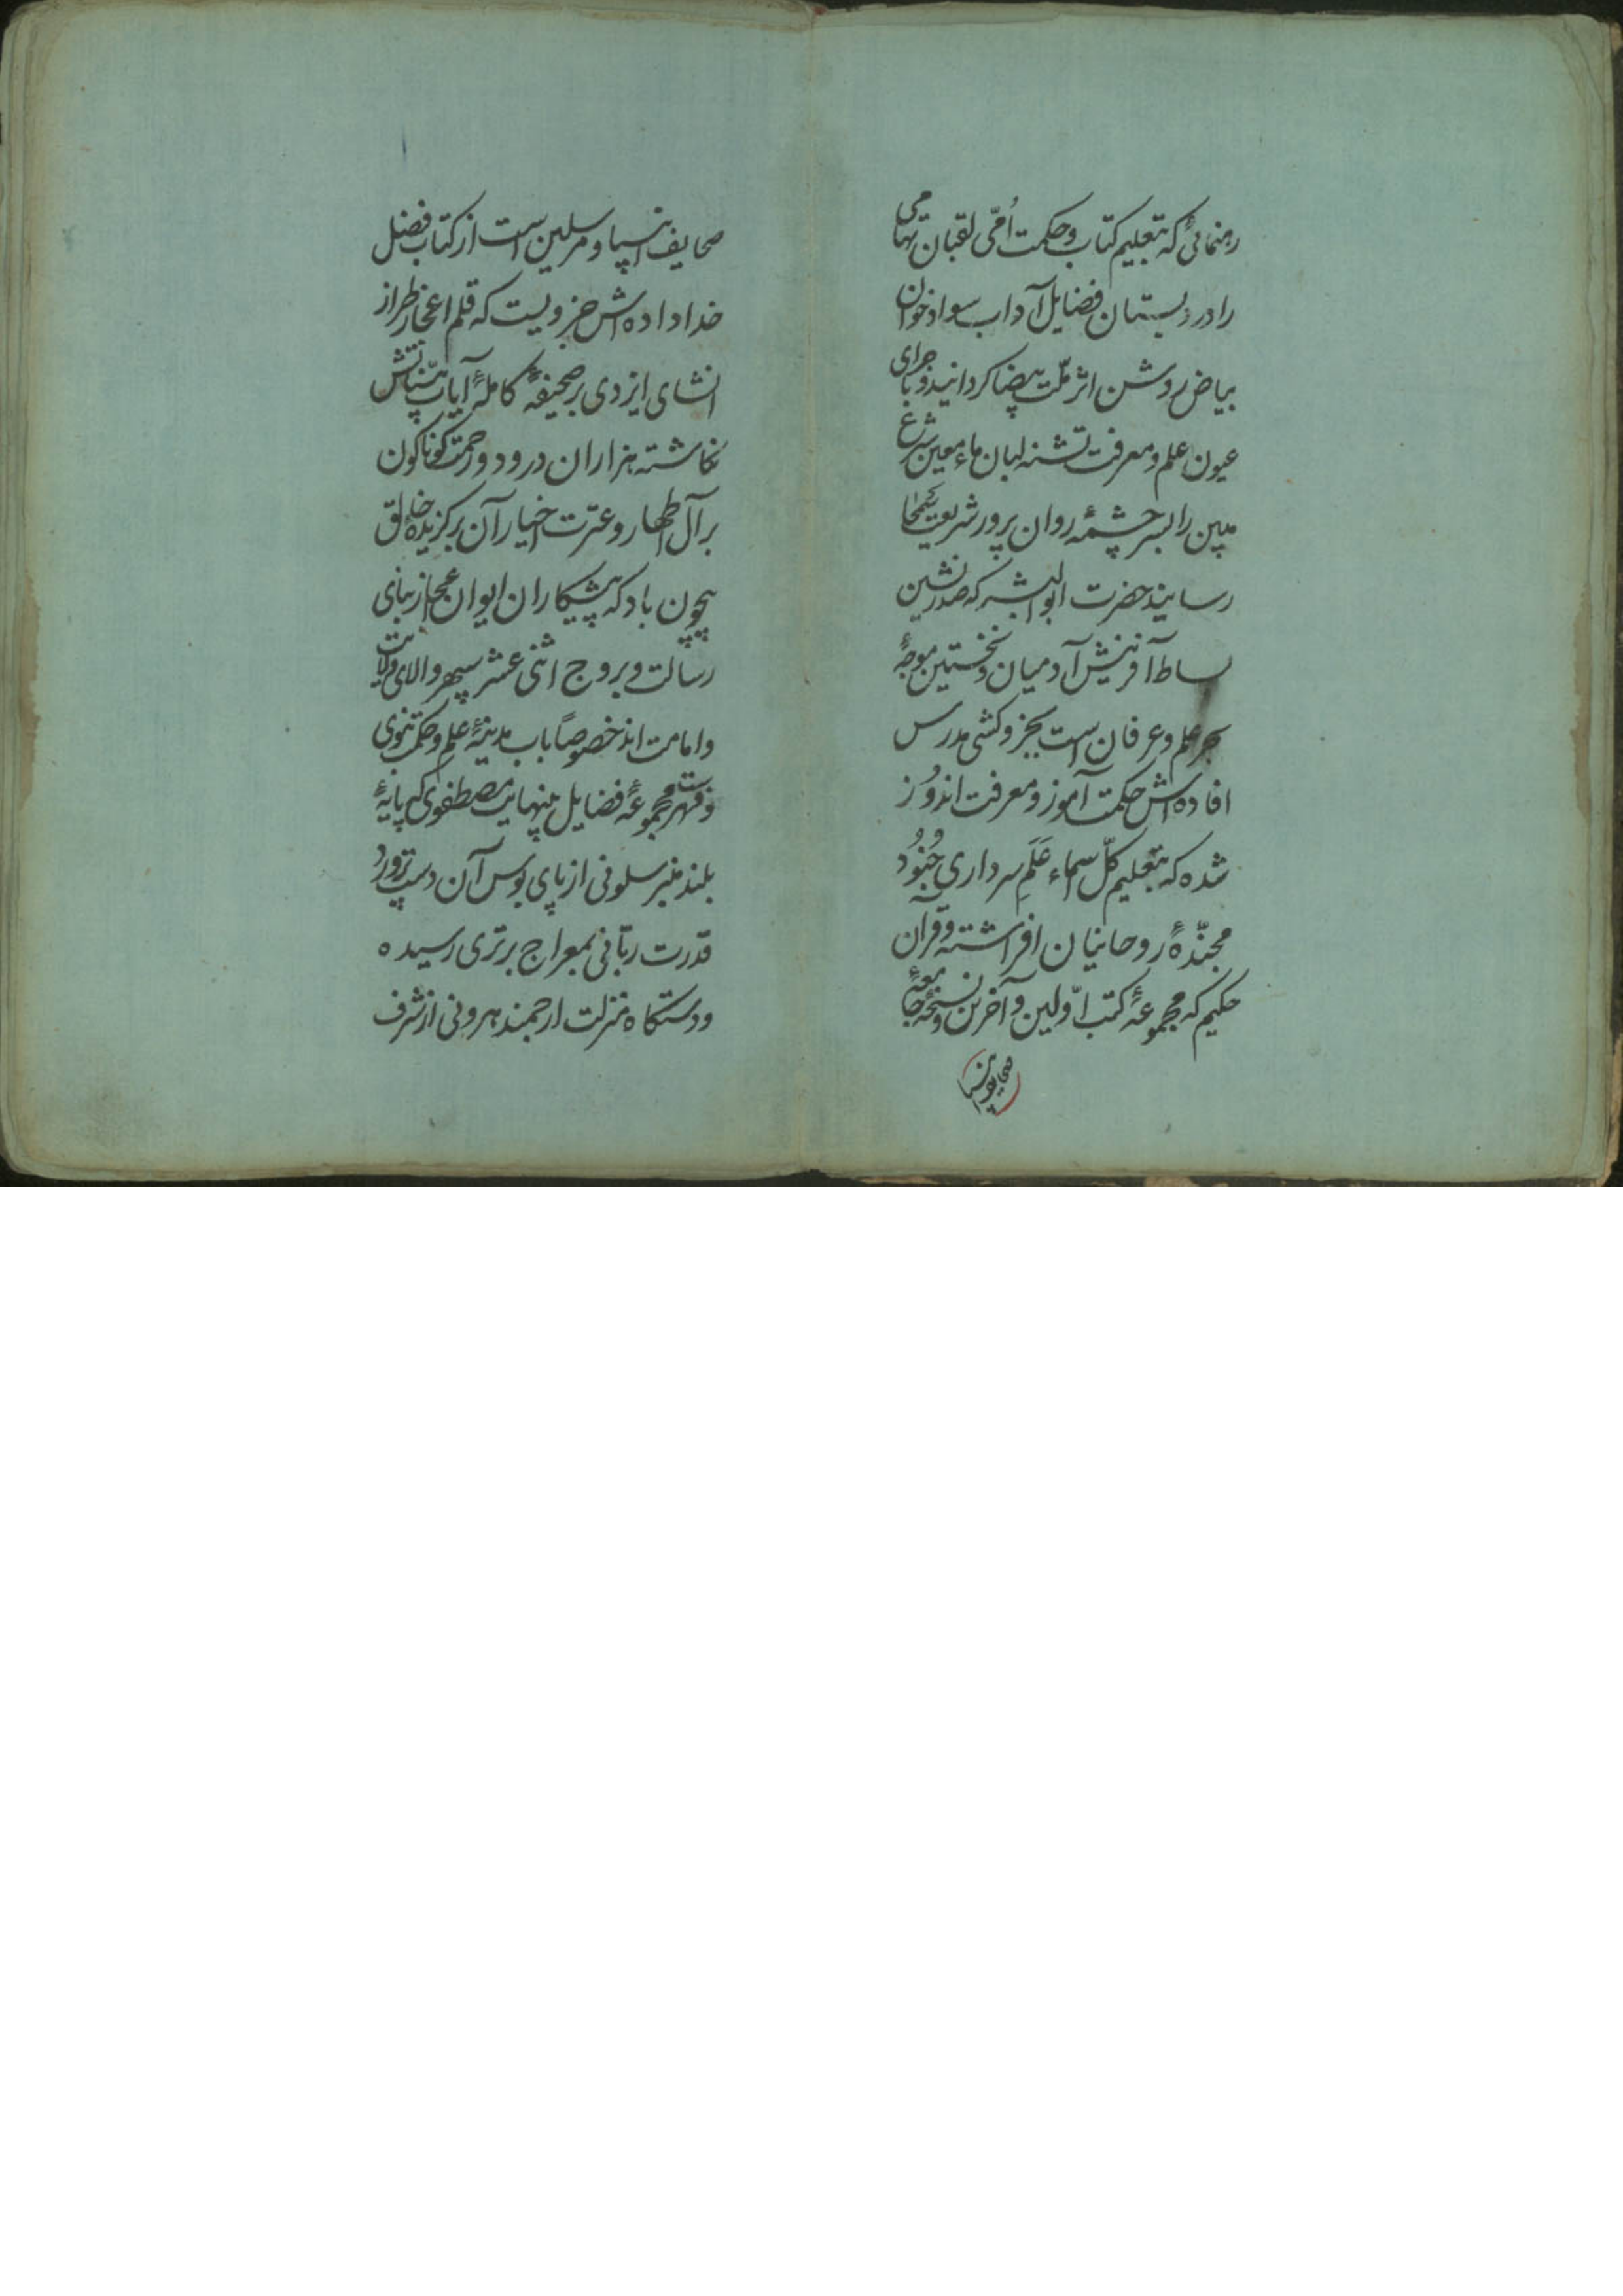 رهنمائی که بتعلیم کتاب و حکمت اُمّی لقبان تهامی
را در دبستان فضایل آداب سواد خوان
بیاض روشن اثر ملّت بیضا کردانید و باجرای
عیون علم و معرفت تشنه لبان ماء معین شرع
مبین را بسرچشمهٔ روان پرور شریعت
رسانید حضرت ابوالبشر که صدرنشین
بساط آفرینش آدمیان و نخستین موجهٔ
بحر علم و عرفان است بجزو کشی مدرس
افاده اش حکمت آموز و معرفت اندوز
شده که بتعلیم کلّ اسماء عَلَمِ سرداری جُنُود
مجنّدهٔ روحانیان افراشته و قرآن
حکیم که مجموعهٔ کتب اوّلین و آخرین و نسخهٔ جامعهٔ
صحایف انبیا
صحایف انبیا و مرسلین است از کتاب فضل
خداداده اش جزویست که قلم اعجاز طراز
انشای ایزدی بر صحیفهٔ کاملهٔ آیات بیّناتش
نکاشته هزاران درود و رحمت کوناکون
بر آل اطهار و عترت اخیار آن برکزیدهٔ خالق
بیچون باد که پیشکاران ایوان عجاز بنای
رسالت و بروج اثنی عشر سپهر والای ولایت
و امامت اند خصوصاً باب مدینهٔ علم و حکمت نبوی
و فهرست مجموعهٔ فضایل بینهایت مصطفوی که پایهٔ
بلند منبر سلونی از پای بوس آن دست پرورد
قدرت ربّانی بمعراج برتری رسیده
و دستکاه منزلت ارجمند هرونی از شرف